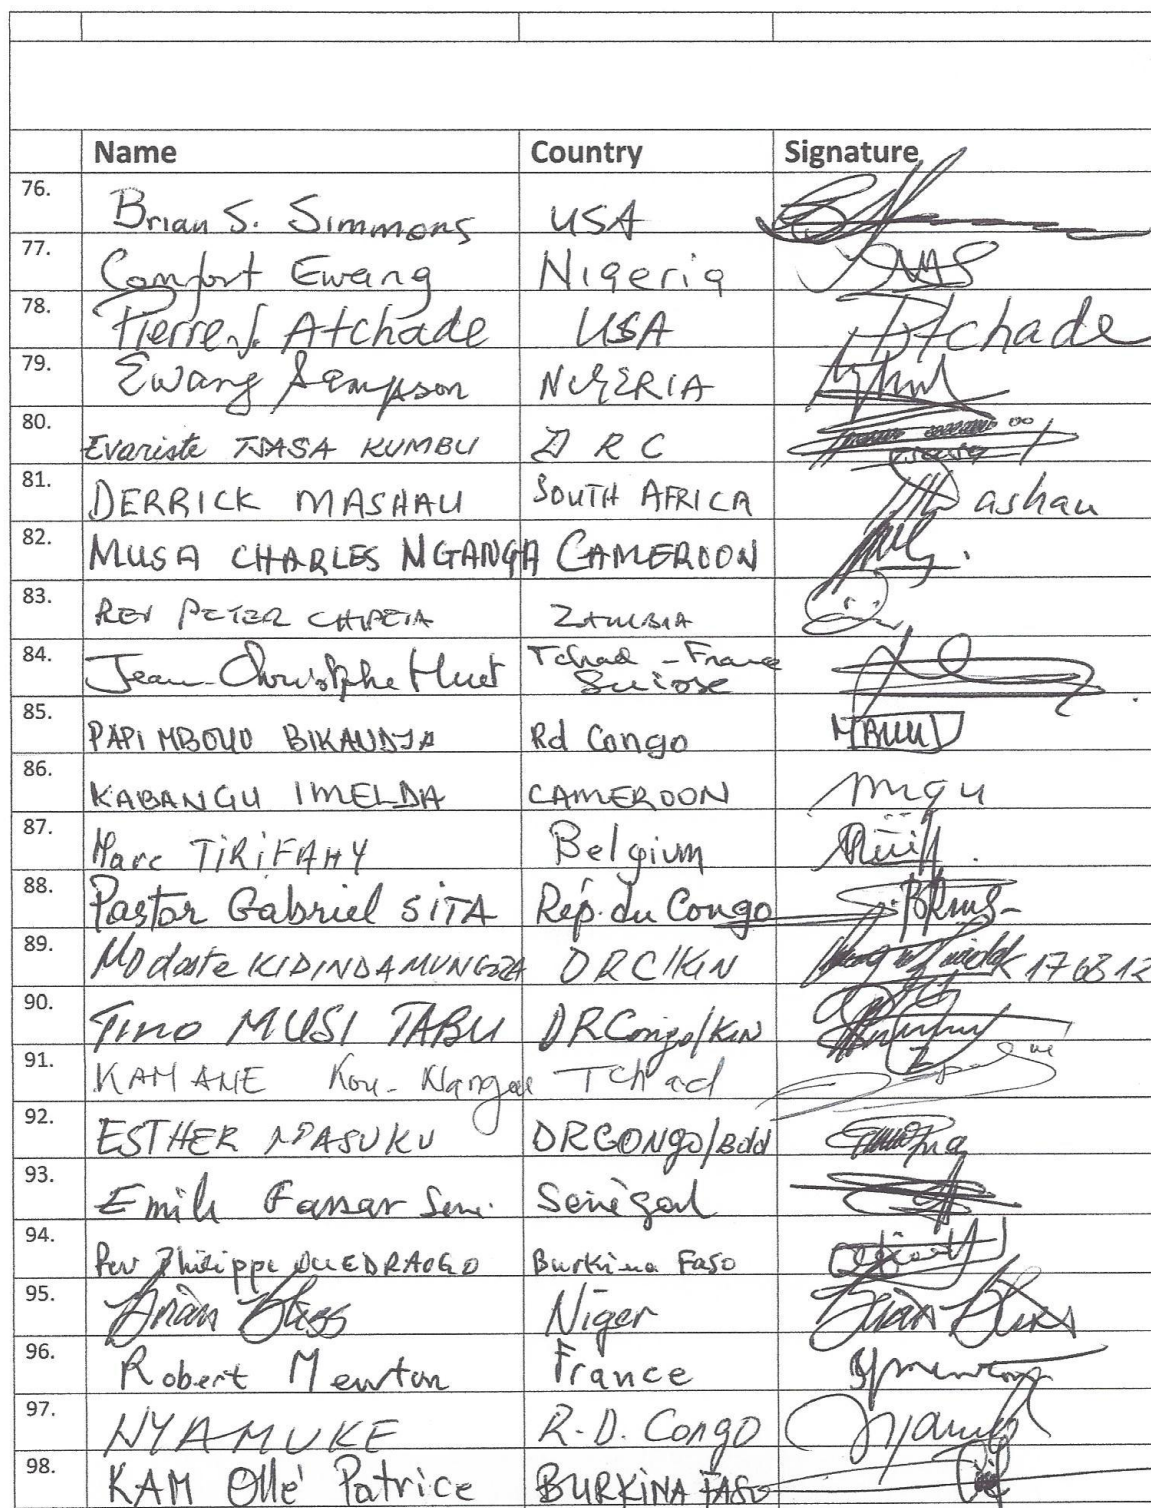 Name Country Signature
76. Brian S. Simmons USA
77. Comfort Ewang Nigeria
78. Pierre J. Atchade USA Atchade
79. Ewang Sampson NIGERIA
80. Evariste TSASA KUMBU D R C
81. DERRICK MASHAU SOUTH AFRICA Mashau
82. MUSA CHARLES NGANGA CAMEROON
83. REV PETER CHIPETA ZAMBIA
84. Jean-Christophe Huet Tchad - France
Suisse
85. PAPI MBOUO BIKAUDJA Rd Congo
86. KABANGU IMELDA CAMEROON
87. Marc TiRiFAHY Belgium
88. Pastor Gabriel SITA Rép. du Congo
89. Modaste KIDINDAMUNGOZA DRC/KIN 176812
90. Tino MUSI TABU DRCongo/KIN
91. KAMANE Tchad
92. ESTHER MPASUKU DRCONGO/Bdd
93. Emile Sénégal
94. Rev Philippe OUEDRAOGO Burkina Faso
95. Brian Bliss Niger Brian Bliss
96. Robert Mewton France
97. NYAMUKE R.D. Congo
98. KAM Ollé Patrice BURKINA FASO